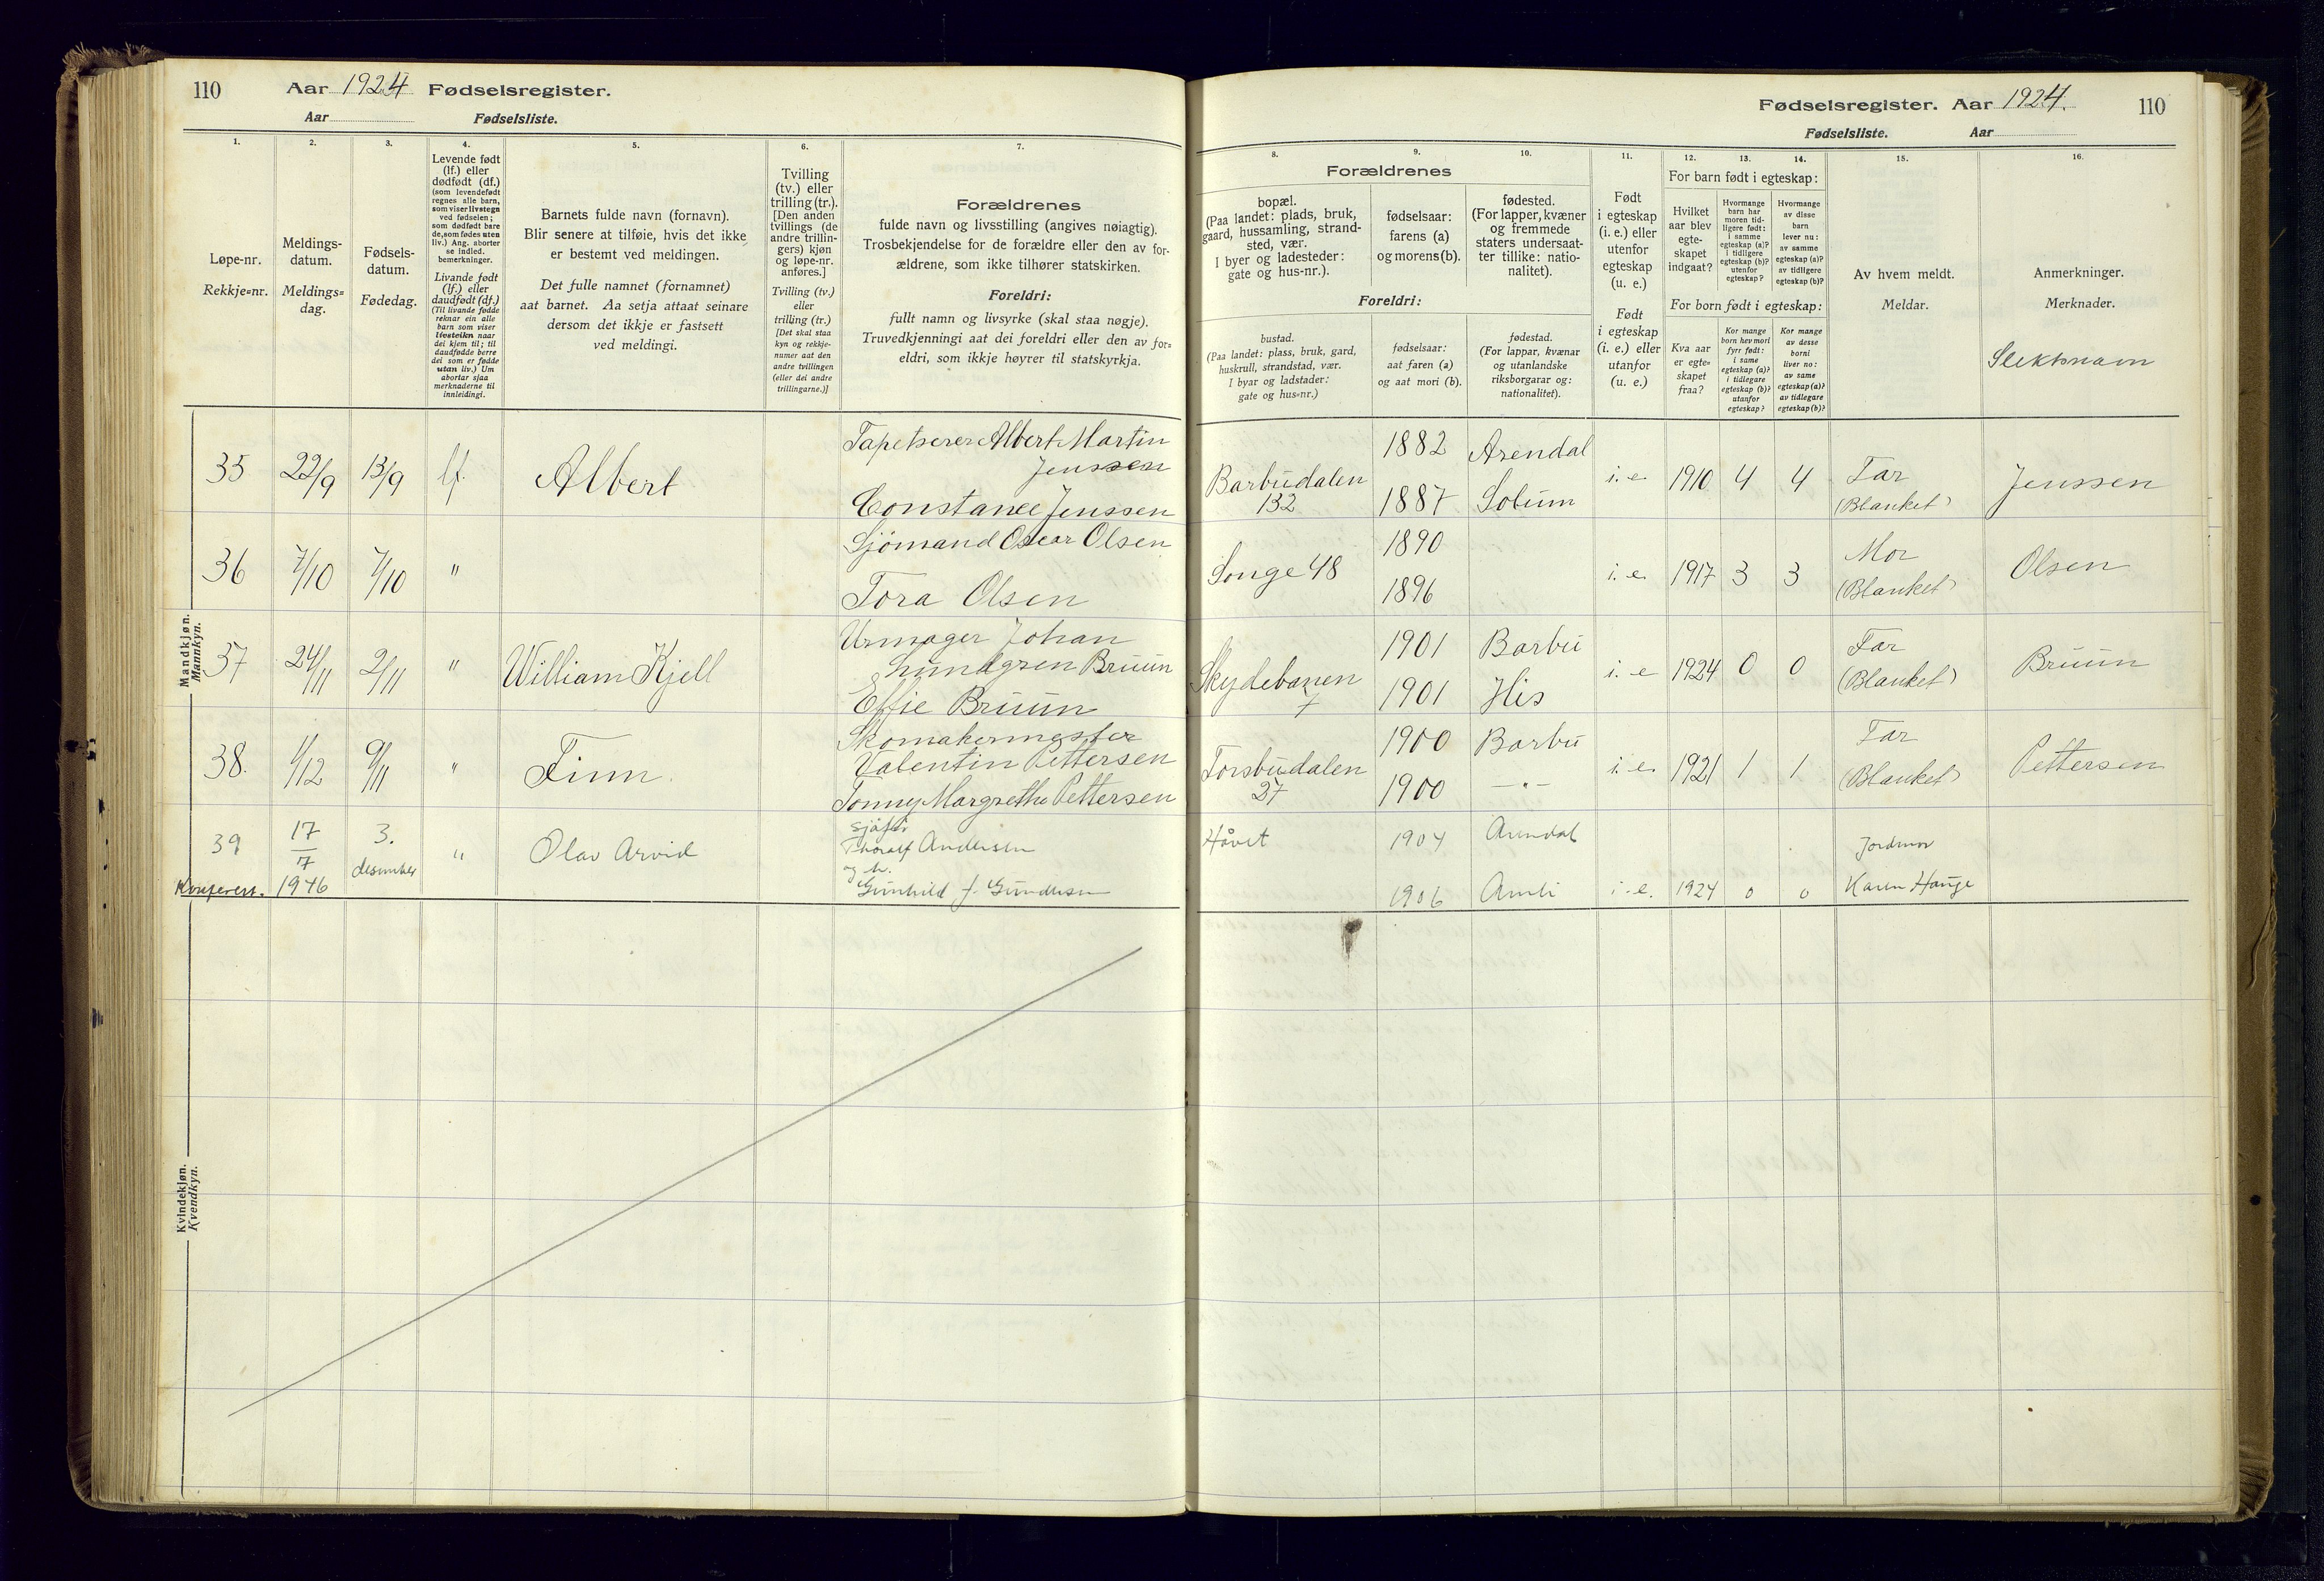 110 Aar 1924 Fødselsregister.
Aar Fødselsliste.
1. 2. 3. 4. 5. 6. 7.
Løpe-nr.
Rekkje=nr.
Meldings-
datum.
Meldings=
dag.
Fødsels-
datum.
Fødedag.
Levende født
(lf.) eller
dødfødt (df.)
(som levendefødt
regnes alle barn,
som viser livstegn
ved fødselen;
som dødfødt bare
de, som fødes uten
liv.) Ang. aborter
se indled.
bemerkninger.
Livande født
(lf.) eller
daudfødt (df.)
(Til livande fødde
reknar ein alle
barn som viser
livsteikn naar
dei kjem til; til
daudfødde berre
dei som er fødde
utan liv.) Um
abortar sjaa
merknaderne til
innleidingi.
Barnets fulde navn (fornavn).
Blir senere at tilføie, hvis det ikke
er bestemt ved meldingen.
Det fulle namnet (fornamnet)
aat barnet. Aa setja attaat seinare
dersom det ikkje er fastsett
ved meldingi.
Tvilling
(tv.) eller
trilling (tr.).
[Den anden
tvillings (de
andre trillin-
gers) kjøn
og løpe-nr.
anføres.]
Tvilling (tv.)
eller
trilling (tr.)
[Det skal staa
kyn og rekkje-
numer aat den
andre tvillingen
(eller dei andre
trillingarne.)]
Forældrenes
fulde navn og livsstilling (angives nøiagtig).
Trosbekjendelse for de forældre eller den av for-
ældrene, som ikke tilhører statskirken.
Foreldri:
fullt namn og livsyrke (skal staa nøgje).
Truvedkjenningi aat dei foreldri eller den av for=
eldri, som ikkje høyrer til statskyrkja.
Mandkjøn.
Mannkyn.
35 22/9 13/9 lf. Albert
Tapetserer Albert Martin
Jenssen
Constance Jenssen
36 7/10 7/10 "
Sjömand Oscar Olsen
Tora Olsen
37 24/11 2/11 " William Kjell
Urmager Johan
Lundgren Bruun
Effie Bruun
38. 1/12 9/11 " Finn.
Skomakermester
Valentin Pettersen
Tonny Margrethe Pettersen
39 17/7 1946 3. desember " Olav Arvid
Konferert.
sjåfør
Thoralf Andersen
og h.
Gunhild f. Gundersen
Kvindekjøn.
Kvendkyn.
Fødselsregister. Aar 1924. 110
Fødselsliste. Aar
8. 9. 10. 11. 12. 13. 14. 15. 16.
Forældrenes
bopæl.
(Paa landet: plads, bruk,
gaard, hussamling, strand-
sted, vær.
I byer og ladesteder:
gate og hus-nr.).
fødselsaar:
farens (a)
og morens (b).
fødested.
(For lapper, kvæner
og fremmede
staters undersaat-
ter tillike: natio-
nalitet).
Foreldri:
bustad.
(Paa landet: plass, bruk, gard,
huskrull, strandstad, vær.
I byar og ladstader:
gate og hus=nr.)
fødselsaar:
aat faren (a)
og aat mori (b).
fødestad.
(For lappar, kvænar
og utanlandske
riksborgarar og:
nationalitet).
Født
i egteskap
(i. e.) eller
utenfor
egteskap
(u. e.)
Født
i egteskap
(i. e.) eller
utanfor
(u. e.)
For barn født i egteskap:
Hvilket
aar blev
egte-
skapet
indgaat?
Hvormange
barn har
moren tid-
ligere født:
i samme
egteskap (a)?
i tidligere
egteskap (b)?
utenfor
egteskap?
Hvormange
av disse
barn
lever nu:
av samme
egteskap (a)?
av tidligere
egteskap (b)?
For born født i egteskap:
Kva aar
er egte=
skapet
fraa?
Kor mange
born hev mori
fyrr født:
i same
egteskap (a)?
i tidlegare
egteskap (b)?
utanfor
egteskap?
Kor mange
av desse
borni
liver no:
av same
egteskap (a)?
av tidlegare
egteskap (b)?
Av hvem meldt.
Meldar.
Anmerkninger.
Merknader.
Slektsnavn
Barbudalen
132
1882 Arendal
1887 Solum
i. e. 1910 4 4 Far
(Blanket) Jenssen
Songe 48
1890
1896
i. e. 1917 3 3 Mor
(Blanket) Olsen
Skydebanen
7
1901 Barbu
1901 His
i. e 1924 0 0 Far
(Blanket) Bruun
Torsbudalen
27
1900 Barbu
1900 — " —
i. e. 1921 1 1 Far
(Blanket) Pettersen
Håvet 1904 Arendal
1906 Amli i. e. 1924 0 0
Jordmor
Karen Hauge